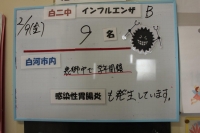 白二中 インフルエンザ B
2/9(金)
9 名
白河市内
感染性胃腸炎 も発生しています。